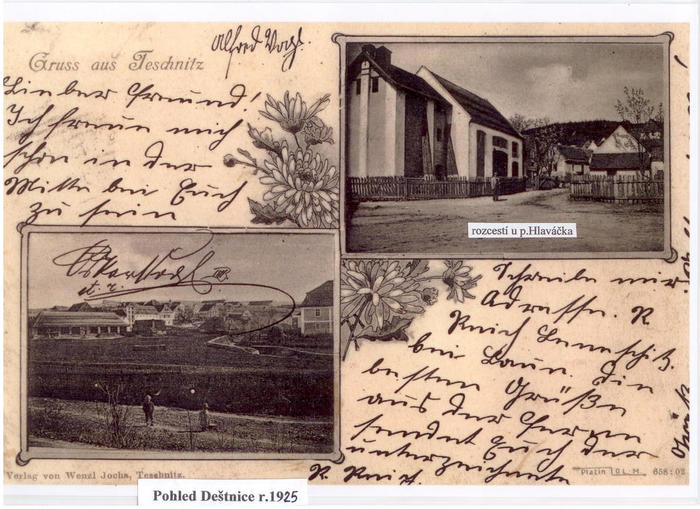 Gruss aus Teschnitz
Alfred Vogl.
Lieber Freund!
Ich freue mich
schon in der
Mitte bei Euch
zu sein
rozcestí u p.Hlaváčka
Schreibe mir
Adresse. R
Reich
bei Laun. Die
besten Grüße
aus der Ferne
sendet Euch der
unterzeichnete
R. Reich
Verlag von Wenzl Jochs, Teschnitz.
Platin D.L.M. 658:02
Pohled Deštnice r.1925